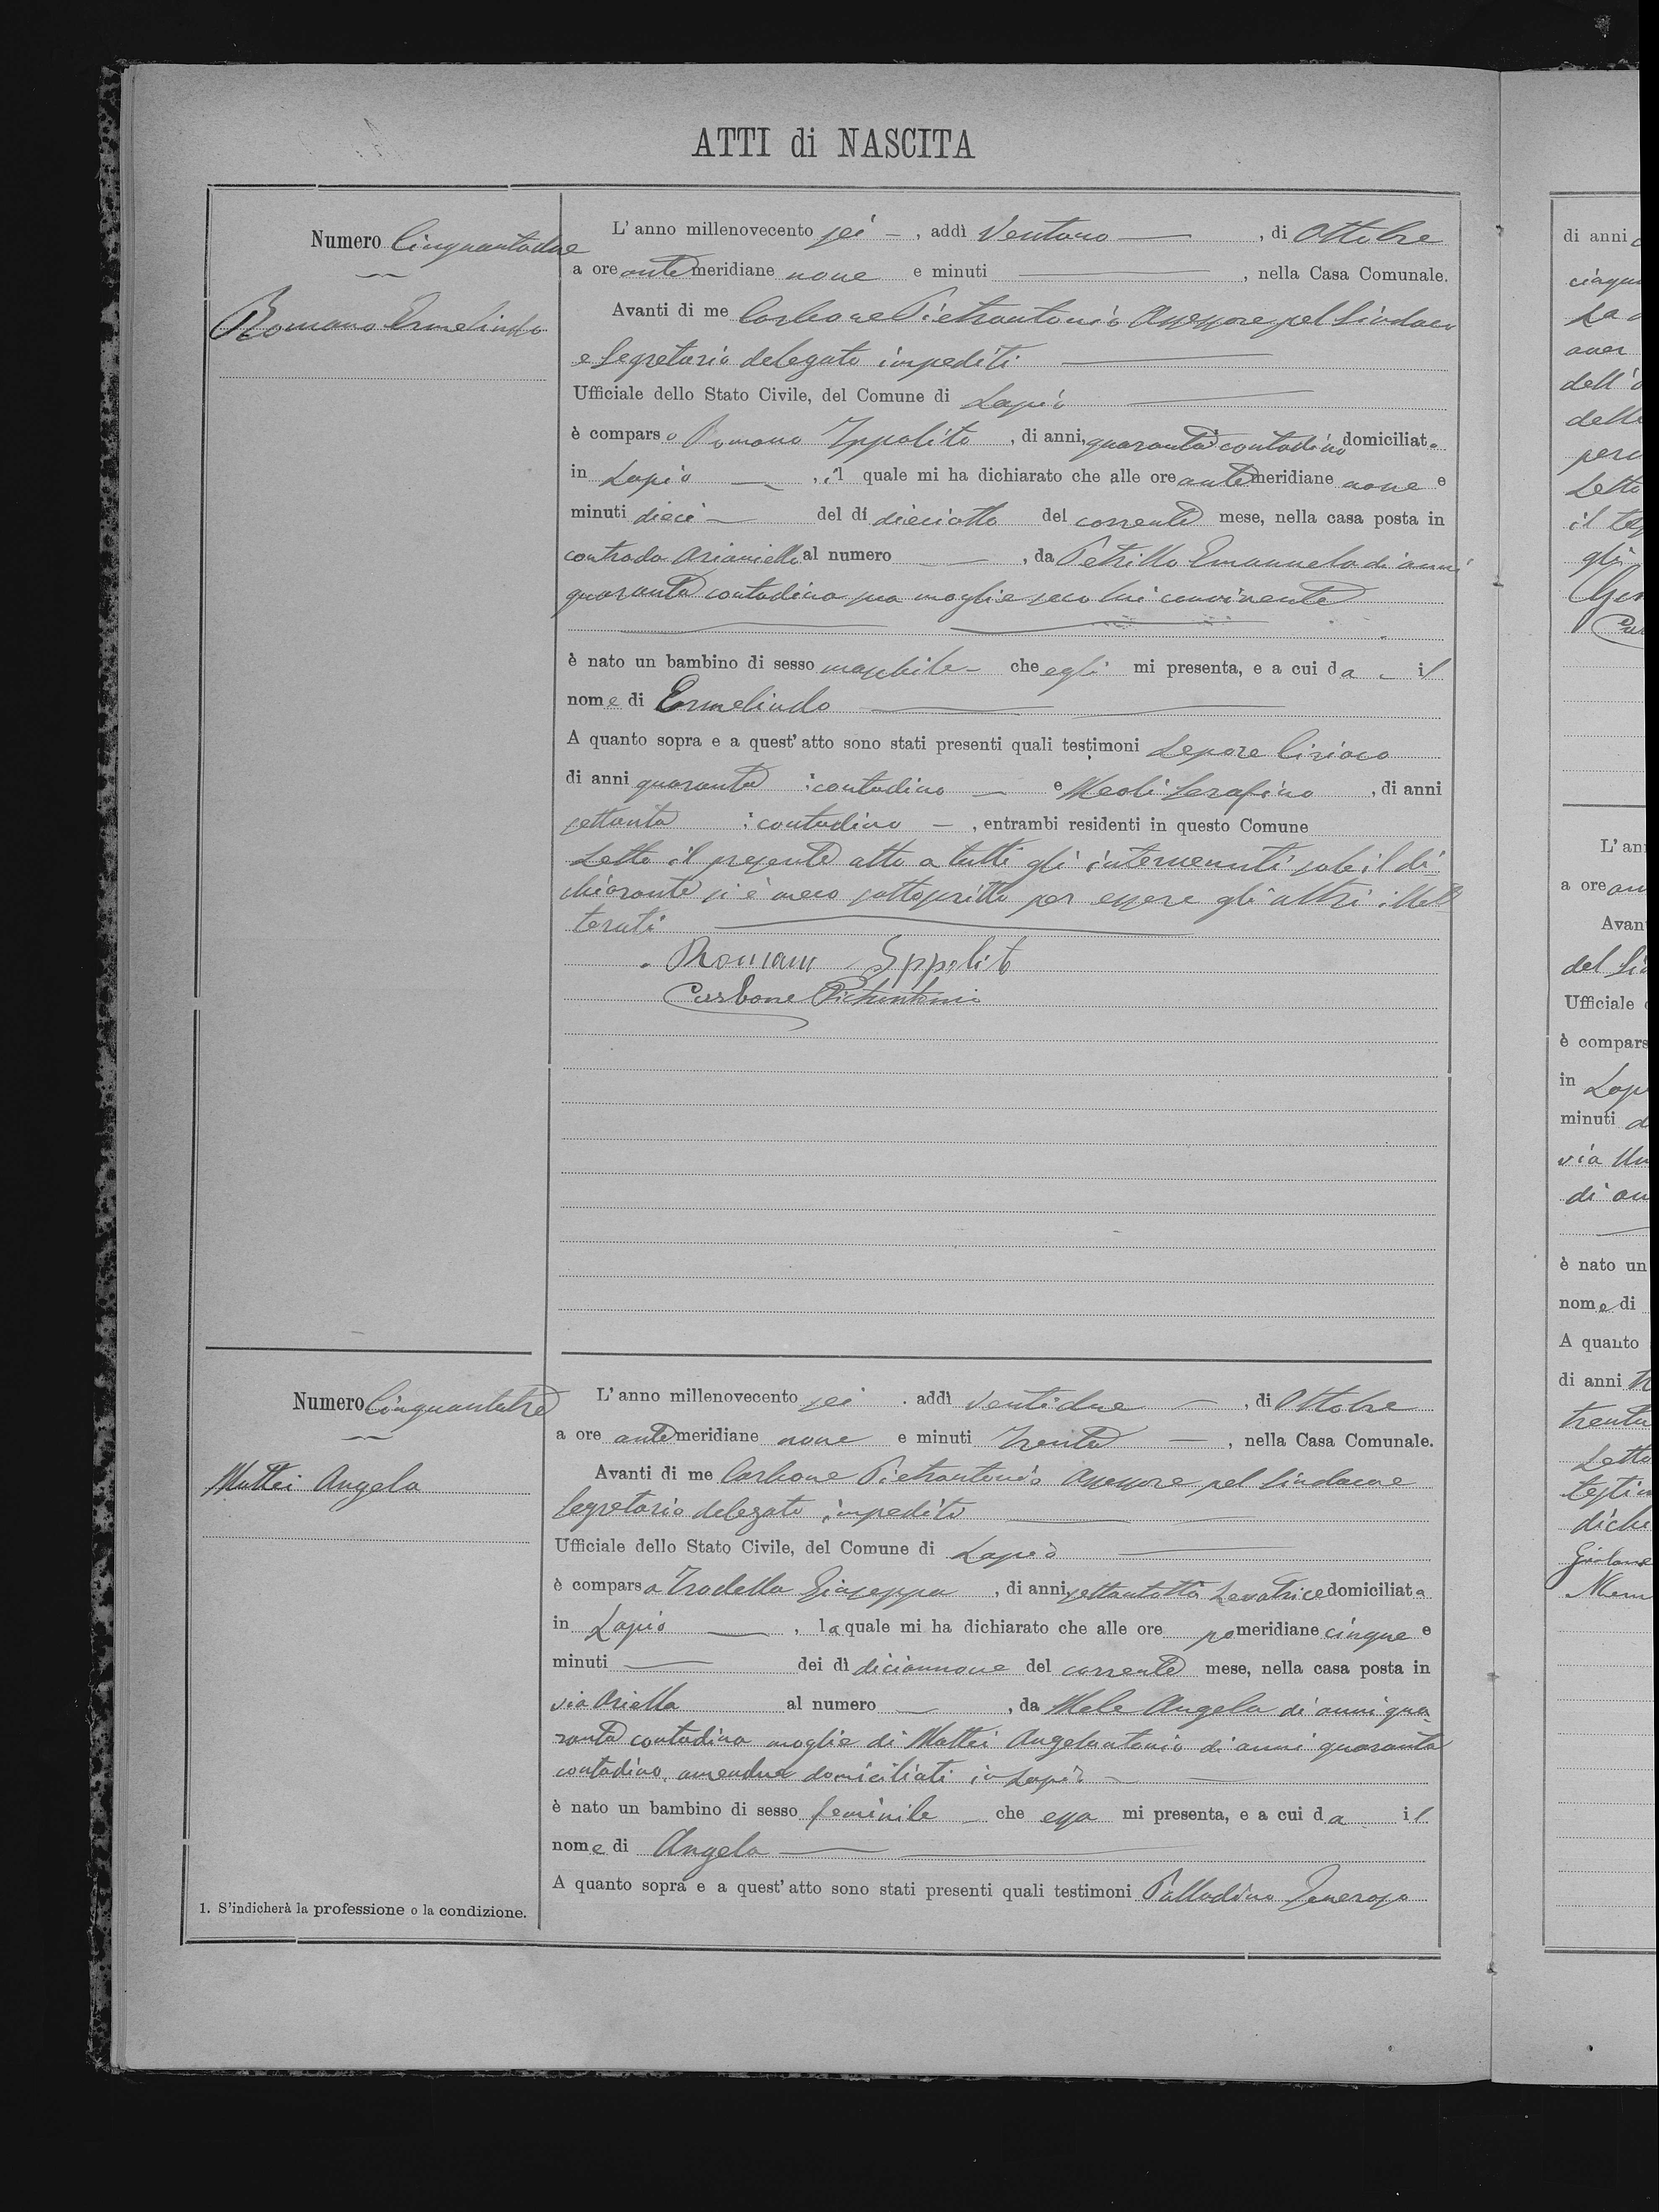 ATTI di NASCITA
Numero Cinquantadue
Romano Ermelindo
L'anno millenovecento sei , addì Ventuno , di Ottobre
a ore antemeridiane nove e minuti , nella Casa Comunale.
Avanti di me Carbone Pietrantonio Assessore pel Sindaco
e Segretario delegato impediti
Ufficiale dello Stato Civile, del Comune di Lapio
è comparso Romano Ippolito , di anni quaranta contadino domiciliato
in Lapio , il quale mi ha dichiarato che alle ore antemeridiane nove e
minuti dieci del dì dieciotto del corrente mese, nella casa posta in
contrada Arianiello al numero , da Petrillo Emanuela di anni
quaranta contadina sua moglie seco lui convivente
è nato un bambino di sesso maschile che egli mi presenta, e a cui da il
nome di Ermelindo
A quanto sopra e a quest'atto sono stati presenti quali testimoni Lepore Ciriaco
di anni quaranta contadino e Meoli Serafino , di anni
settanta contadino , entrambi residenti in questo Comune
Letto il presente atto a tutti gli intervenuti solo il di
chiarante si è meco sottoscritto per essere gli altri illet
terati
Romano Ippolito
Carbone Pietrantonio
Numero Cinquantatre
Mattei Angela
1. S'indicherà la professione o la condizione.
L'anno millenovecento sei addì Ventidue , di Ottobre
a ore antemeridiane nove e minuti Trenta , nella Casa Comunale.
Avanti di me Carbone Pietrantonio Assessore pel Sindaco e
Segretario delegato impedito
Ufficiale dello Stato Civile, del Comune di Lapio
è comparsa Trodella Giuseppa , di anni settantotto Levatrice domiciliata
in Lapio , la quale mi ha dichiarato che alle ore pomeridiane cinque e
minuti dei dì diciannove del corrente mese, nella casa posta in
via Ariella al numero , da Mele Angela di anni qua
ranta contadina moglie di Mattei Angelantonio di anni quaranta
contadino, amendue domiciliati in Lapio
è nato un bambino di sesso feminile che essa mi presenta, e a cui da il
nome di Angela
A quanto sopra e a quest'atto sono stati presenti quali testimoni Palladino Generoso
di anni
dell'
L'an
a ore an
Avan
Ufficiale
è compars
in Lap
minuti
via
è nato un
nome di
A quanto
di anni
Letto